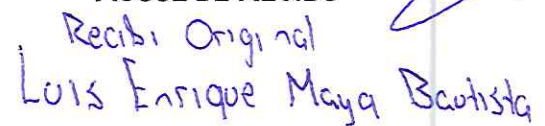 Recibi Original
Luis Enrique Maya Bautista